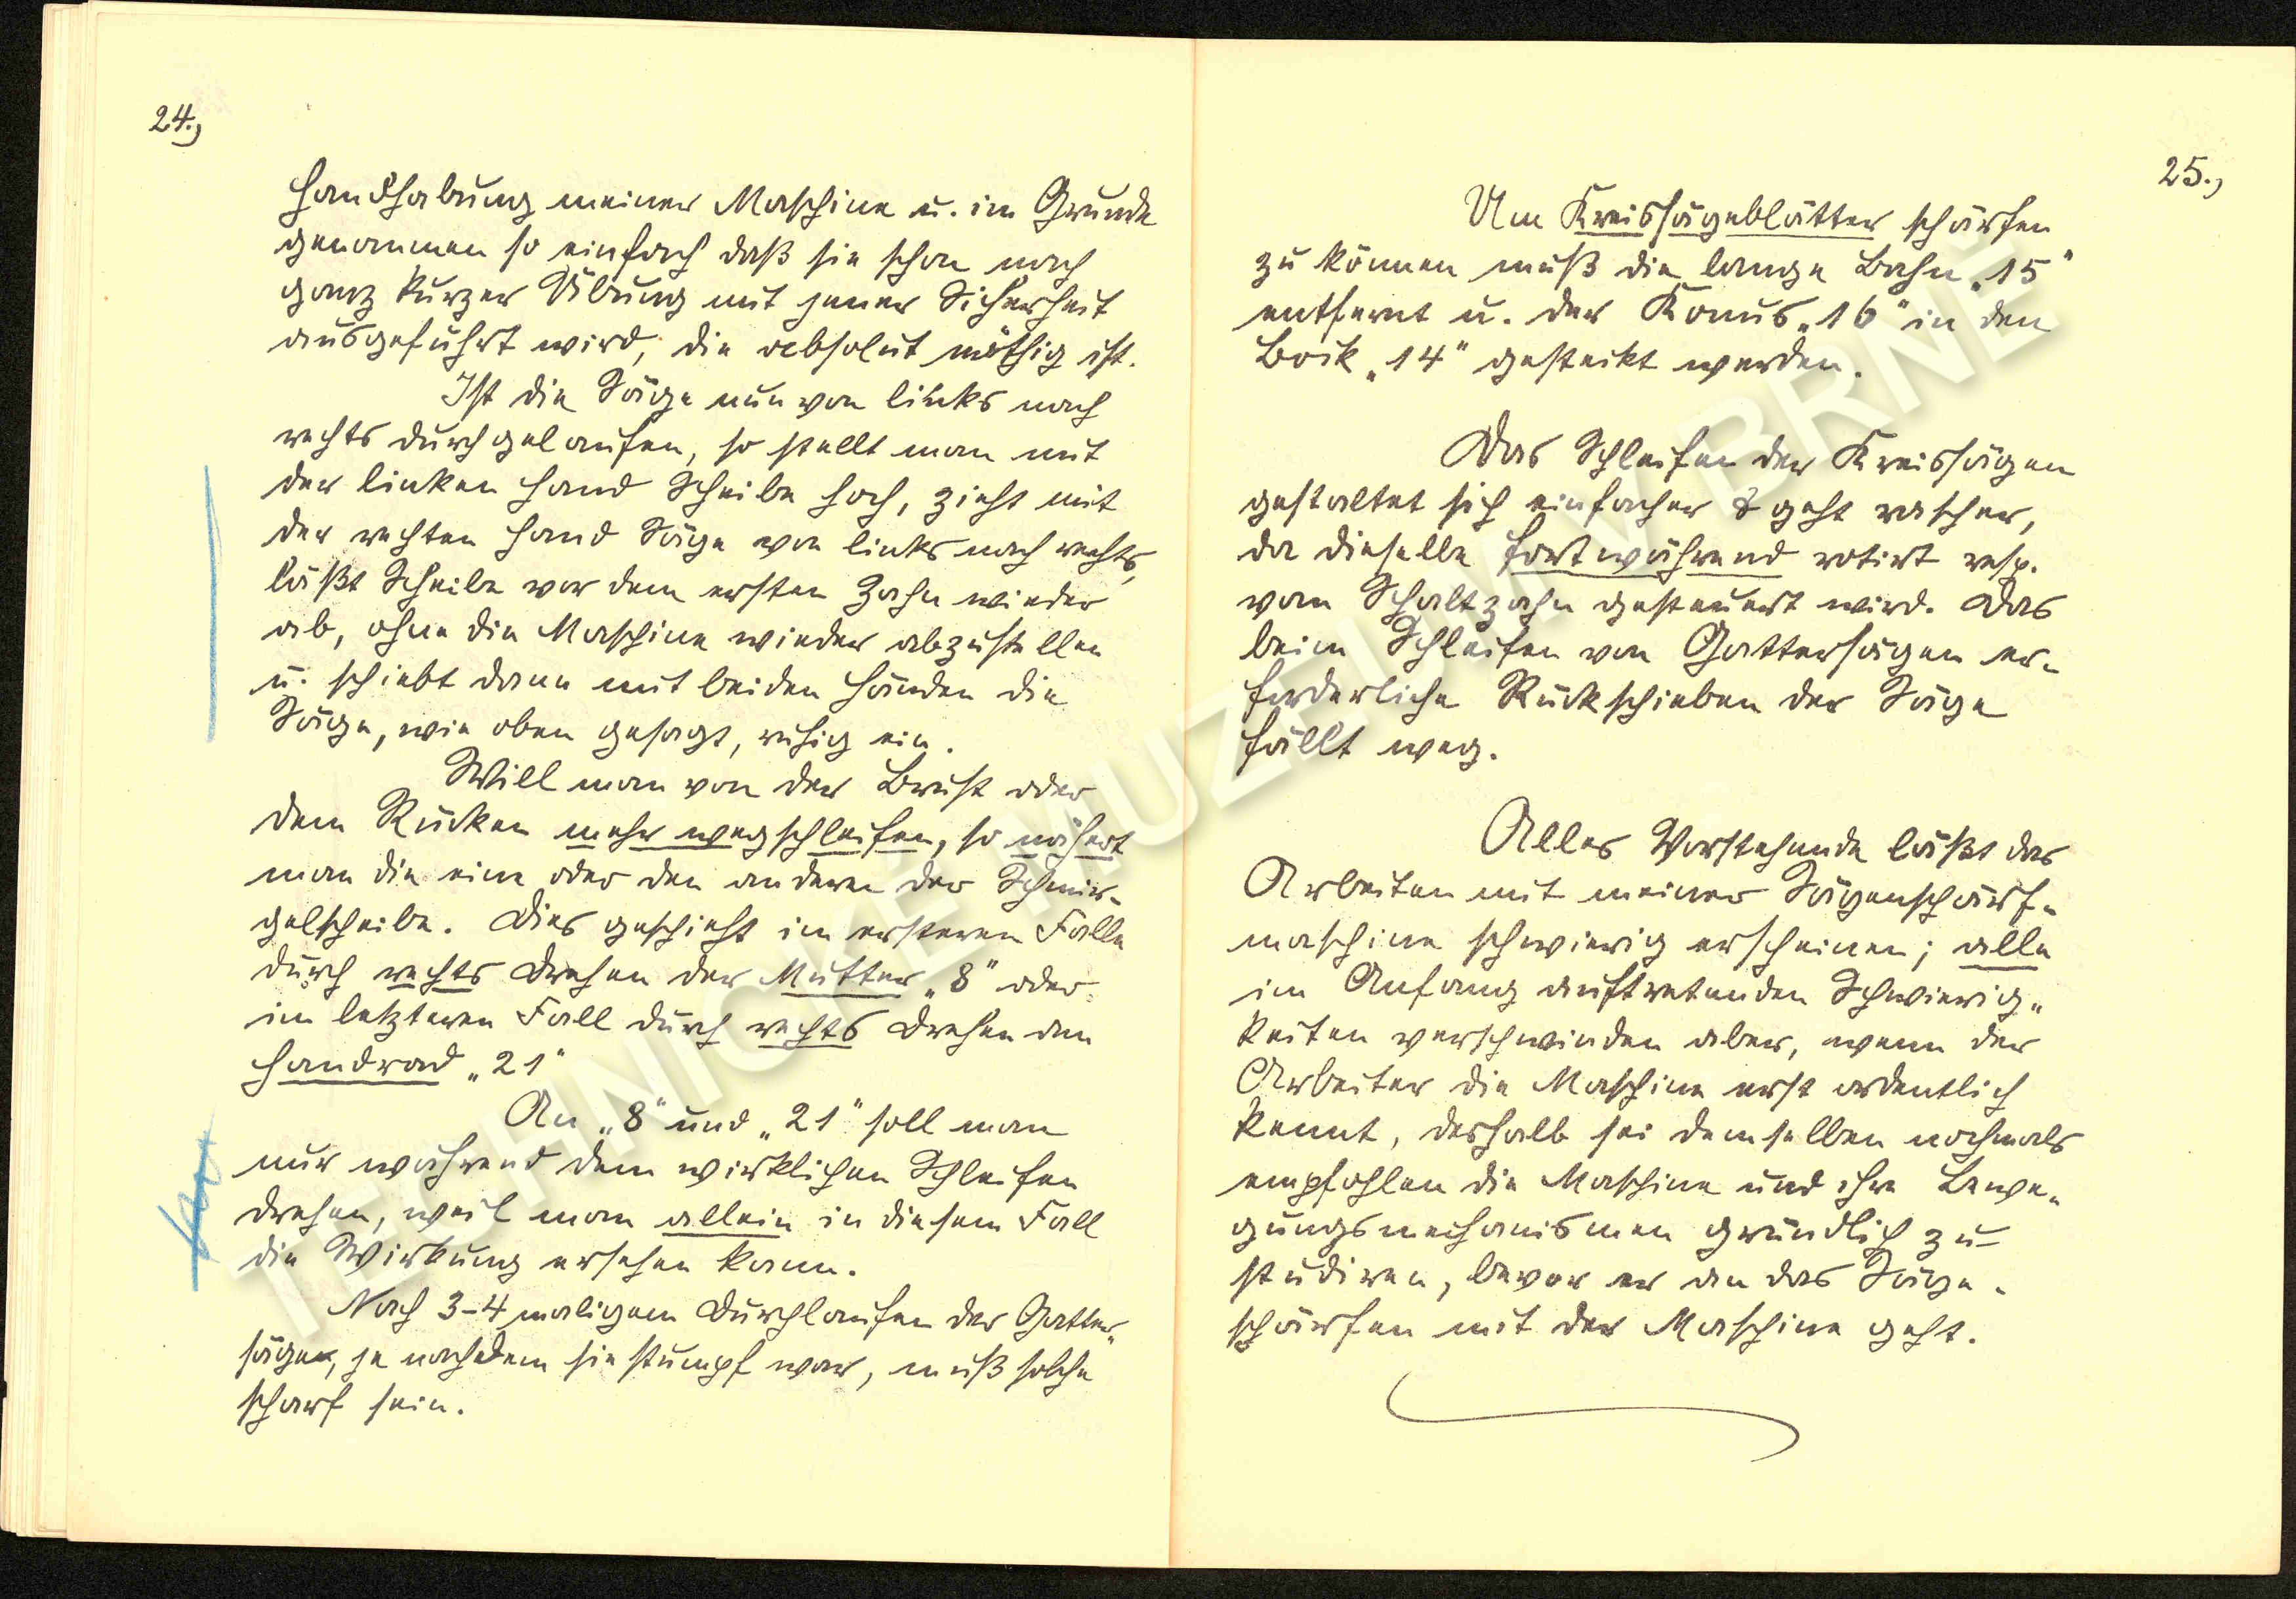 24.)
Handhabung meiner Maschine u. im Grunde
genommen so einfach daß sie schon nach
ganz kurzer Übung mit jener Sicherheit
ausgeführt wird, die absolut nöthig ist.
Ist die Säge nun von links nach
rechts durchgelaufen, so stellt man mit
der linken Hand Scheibe hoch, zieht mit
der rechten Hand Säge von links nach rechts,
läßt Scheibe vor dem ersten Zahn wieder
ab, ohne die Maschine wieder abzustellen
u. schiebt dann mit beiden Händen die
Säge, wie oben gesagt, ruhig ein.
Will man von der Brust oder
dem Rücken mehr wegschleifen, so nähert
man die eine oder den anderen der Schmir-
gelscheibe. Dies geschieht im ersteren Falle
durch rechts Drehen der Mutter „8" oder
im letzteren Fall durch rechts Drehen am
Handrad „21"
An „8" und „21" soll man
nur während dem wirklichen Schleifen
drehen, weil man allein in diesem Fall
die Wirkung ersehen kann.
Nach 3-4 maligem Durchlaufen der Gatter-
sägen, je nachdem sie stumpf war, muß solche
scharf sein.
25.)
Um Kreissägeblätter schärfen
zu können muß die lange Bahn „15"
entfernt u. der Konus „16" in den
Bock „14" gesteckt werden.
Das Schleifen der Kreissägen
gestaltet sich einfacher & geht rascher,
da dieselbe fortwährend rotirt resp.
vom Schaltzahn gesteuert wird. Das
beim Schleifen von Gattersägen er-
forderliche Rückschieben der Säge
fällt weg.
Alles Vorstehende läßt das
Arbeiten mit meiner Sägenschärf-
maschine schwierig erscheinen; alle
im Anfang auftretenden Schwierig-
keiten verschwinden aber, wenn der
Arbeiter die Maschine erst ordentlich
kennt, deshalb sei demselben nochmals
empfohlen die Maschine und ihre Bewe-
gungsmechanismen gründlich zu
studiren, bevor er an das Säge-
schärfen mit der Maschine geht.
TECHNICKÉ MUZEUM V BRNĚ